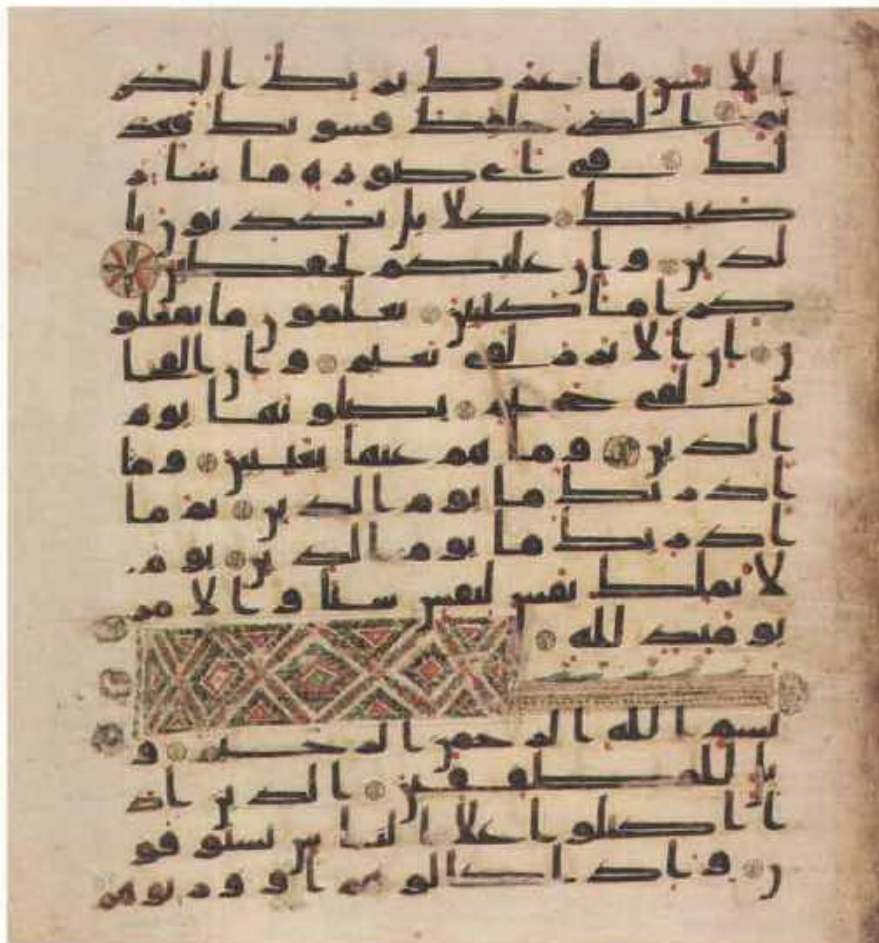 الانسن ما غرك بربك الكر
يم الذى خلقك فسويك فعد
لك فى اى صورة ما شاء ر
كبك كلا بل تكذبون با
لدين وان عليكم لحفظين
كراما كتبين يعلمون ما تفعلو
ن ان الابرار لفى نعيم وان الفجا
ر لفى جحيم يصلونها يوم
الدين وما هم عنها بغئبين وما
ادريك ما يوم الدين ثم ما
ادريك ما يوم الدين يوم
لا تملك نفس لنفس شيا والامر
يومئذ لله
بسم الله الرحمن الرحيم و
يل للمطففين الذين اذ
ا اكتلوا علا الناس يستوفو
ن واذا كالوهم او وزنوهم